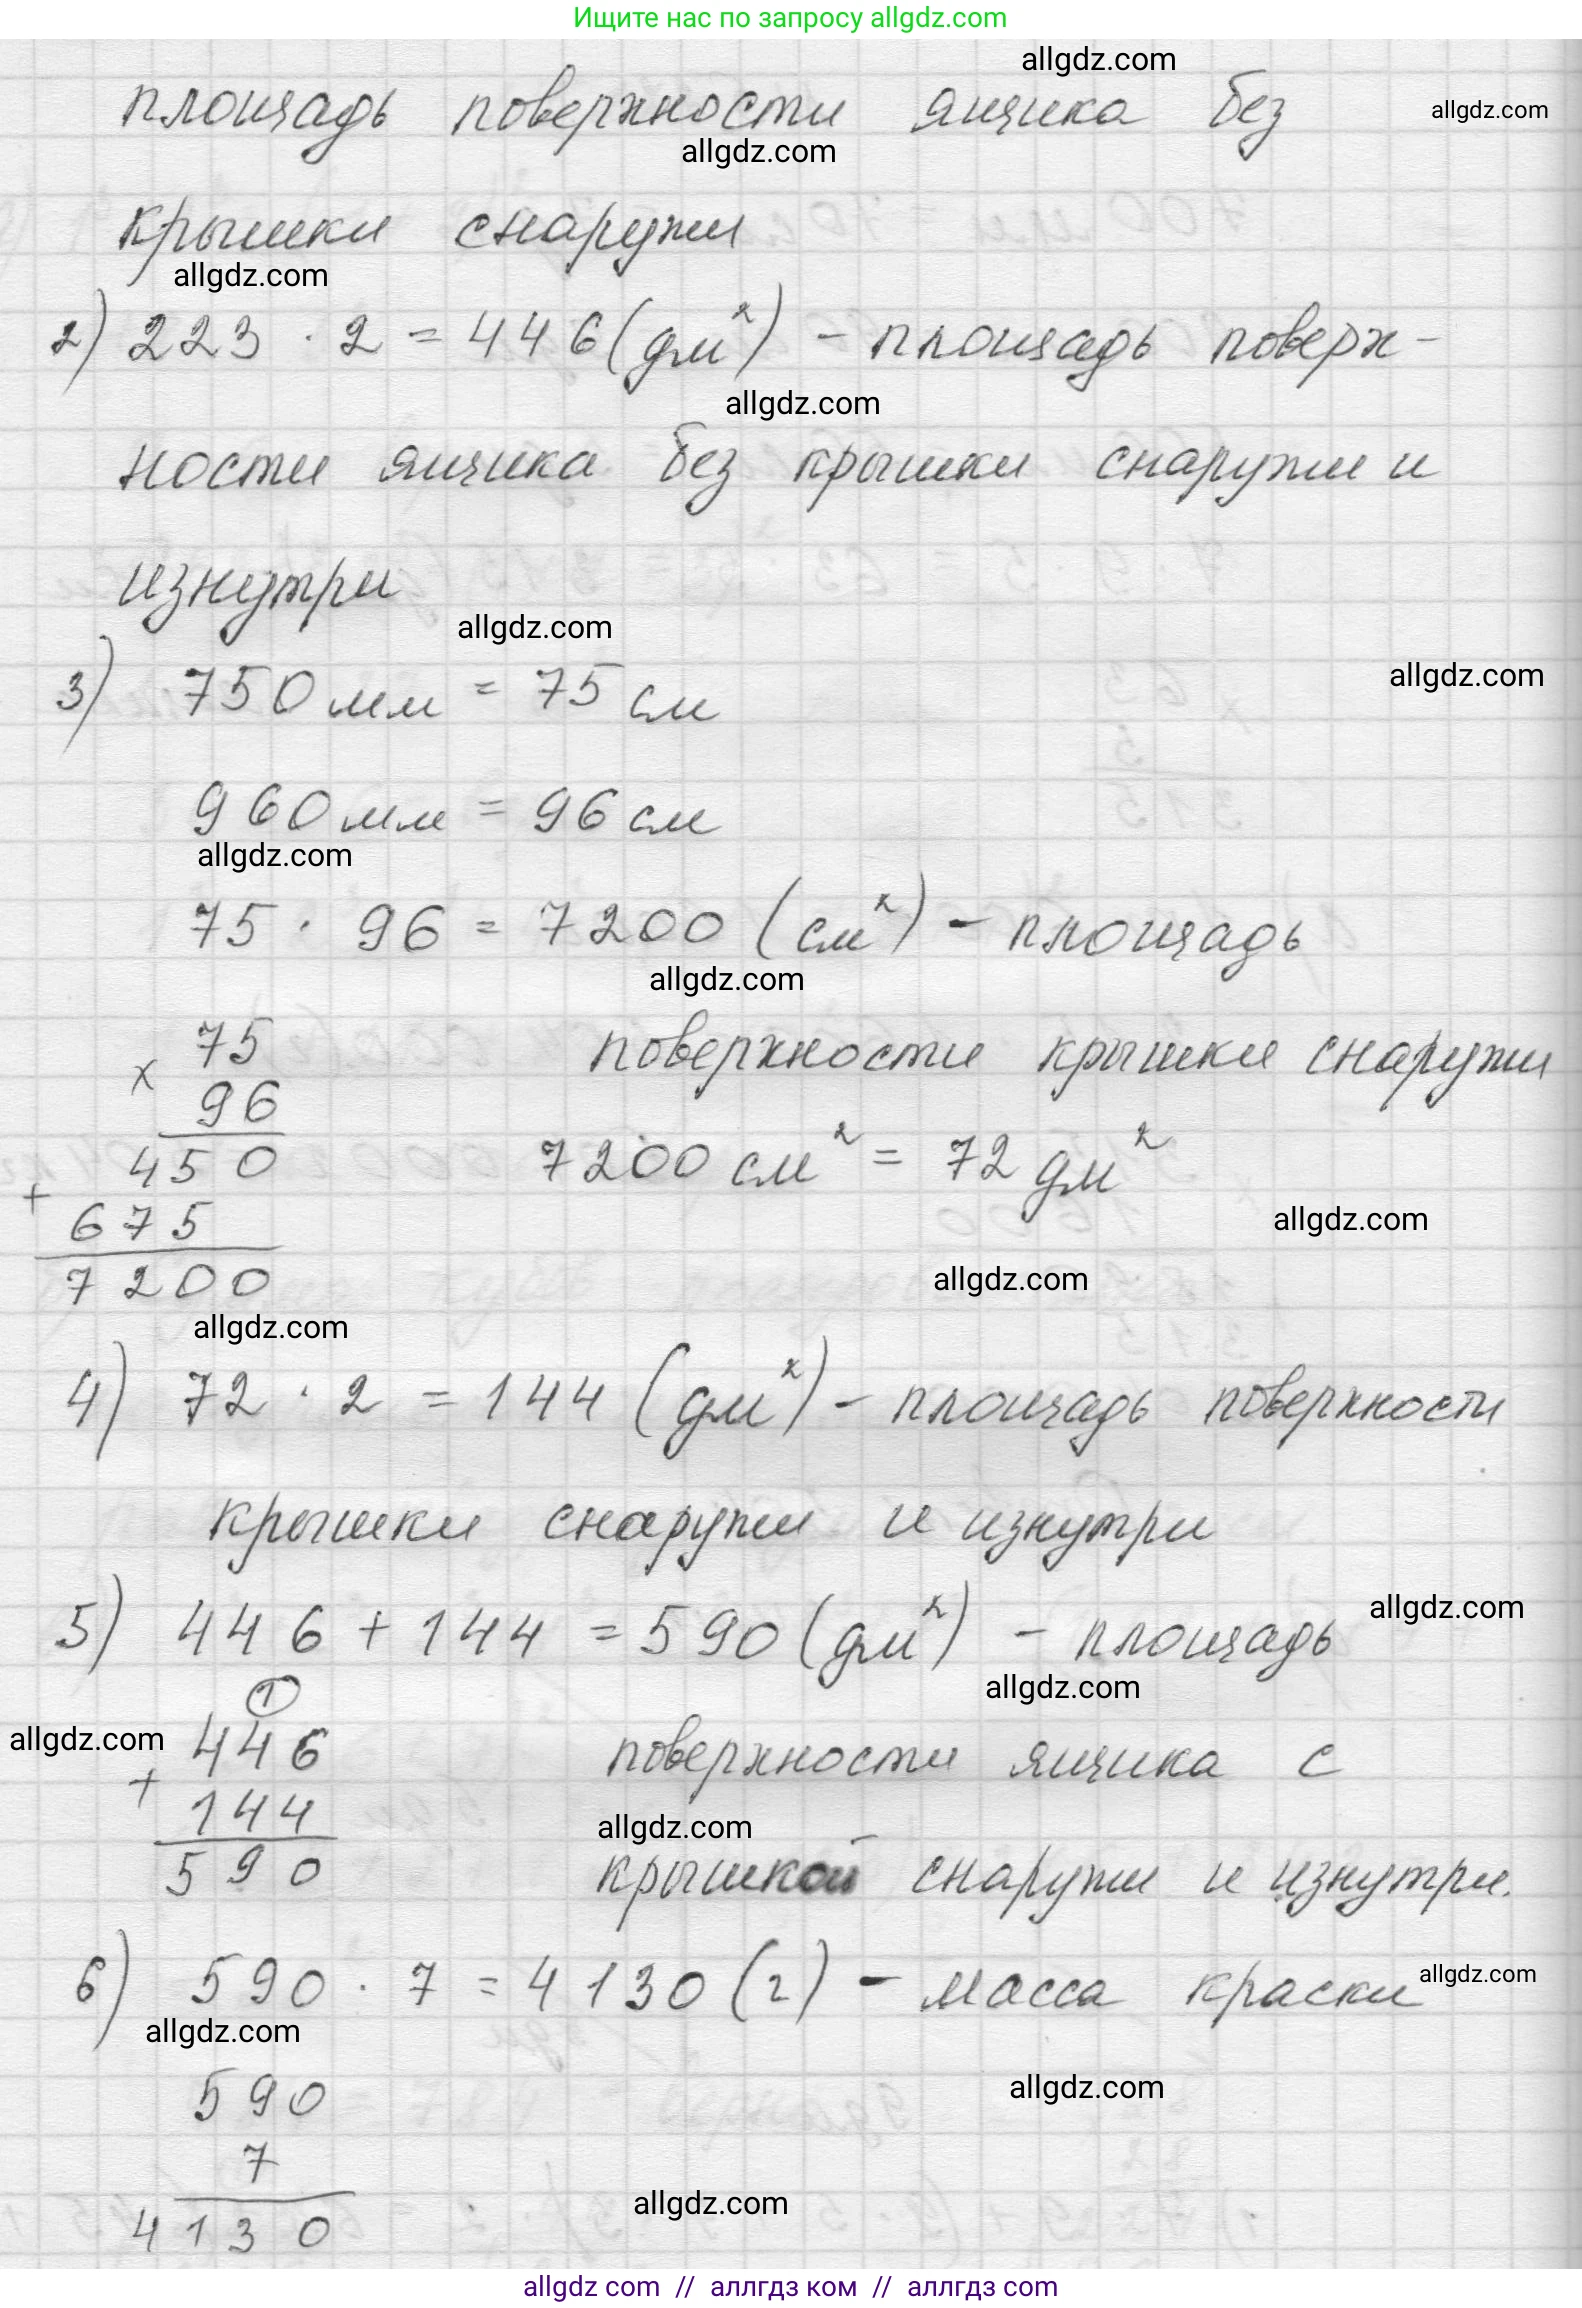 Ищите нас по запросу allgdz.com
allgdz.com
площадь поверхности ящика без
allgdz.com
allgdz.com
крышки снаружи
allgdz.com
2) 223 · 2 = 446 (дм²) - площадь поверх-
allgdz.com
ности ящика без крышки снаружи и
изнутри
allgdz.com
3) 750 мм = 75 см
allgdz.com
960 мм = 96 см
allgdz.com
75 · 96 = 7200 (см²) - площадь
allgdz.com
поверхности крышки снаружи
7200 см² = 72 дм²
x 75
96
450
+
675
7200
allgdz.com
allgdz.com
allgdz.com
4) 72 · 2 = 144 (дм²) - площадь поверхности
крышки снаружи и изнутри
5) 446 + 144 = 590 (дм²) - площадь
allgdz.com
allgdz.com
поверхности ящика с
allgdz.com
крышкой снаружи и изнутри.
1
allgdz.com
446
+
144
590
6) 590 · 7 = 4130 (г) - масса краски
allgdz.com
allgdz.com
590
7
4130
allgdz.com
allgdz.com
allgdz com // аллгдз ком // аллгдз com